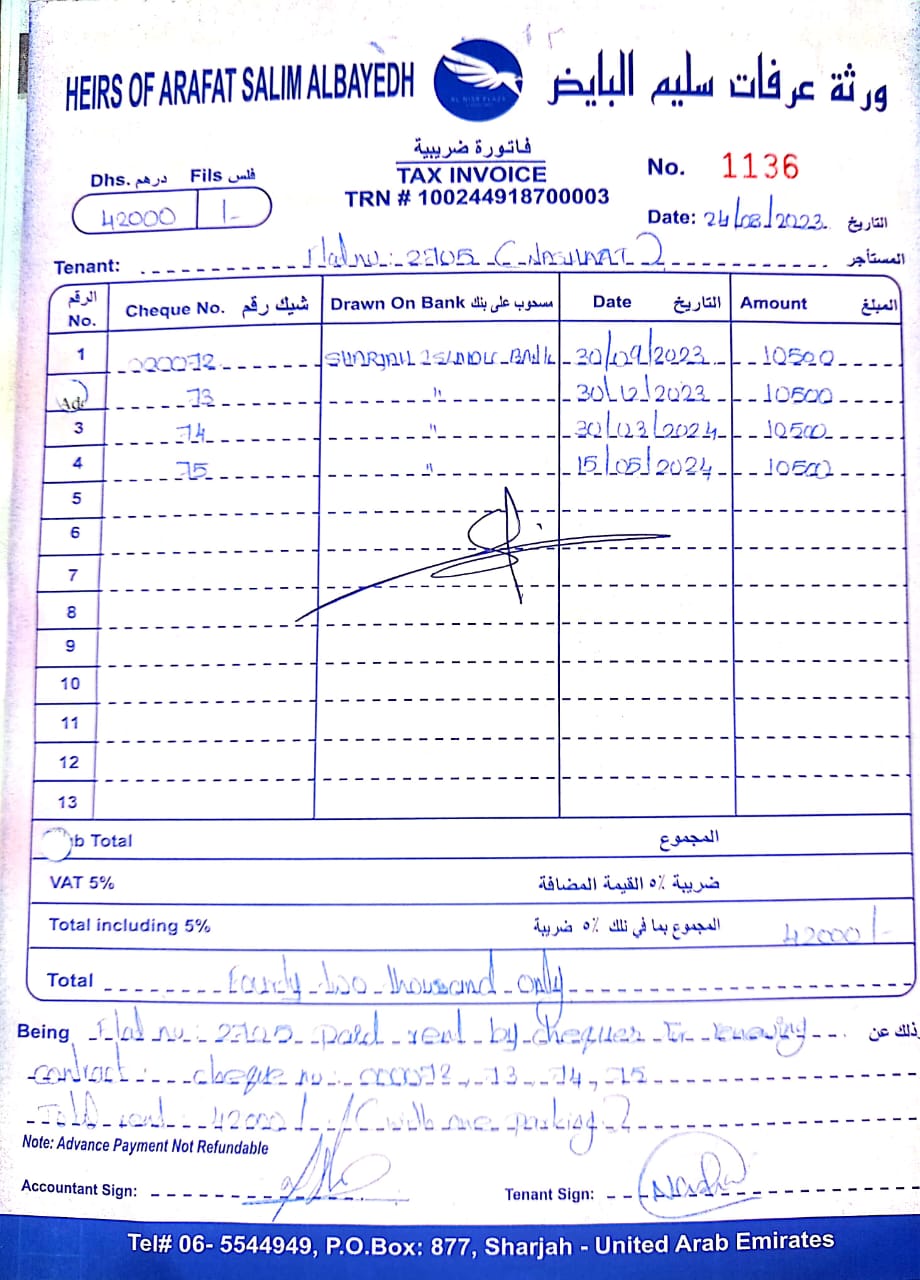 HEIRS OF ARAFAT SALIM ALBAYEDH
ورثة عرفات سليم البايض
AL NISR PLAZA
فاتورة ضريبية
TAX INVOICE
TRN # 100244918700003
No. 1136
Dhs. درهم Fils فلس
42000 /-
Date: 24/08/2023 التاريخ
Tenant: Flat no: 2705 ( ) المستأجر
الرقم No. Cheque No. شيك رقم Drawn On Bank مسحوب على بنك Date التاريخ Amount المبلغ
1 000072 SHARJAH ISLAMIC BANK 30/09/2023 10500
73 " 30/12/2023 10500
3 74 " 30/03/2024 10500
4 75 " 15/05/2024 10500
5
6
7
8
9
10
11
12
13
b Total المجموع
VAT 5% ضريبة ٥٪ القيمة المضافة
Total including 5% المجموع بما في ذلك ٥٪ ضريبة 42000/-
Total Fourty two thousand only
Being Flat no: 2705 paid rent by cheques for renewing ذلك عن
contract : cheque no: 000072, 73, 74, 75
Total rent : 42000/- (with one parking)
Note: Advance Payment Not Refundable
Accountant Sign:
Tenant Sign:
Tel# 06- 5544949, P.O.Box: 877, Sharjah - United Arab Emirates